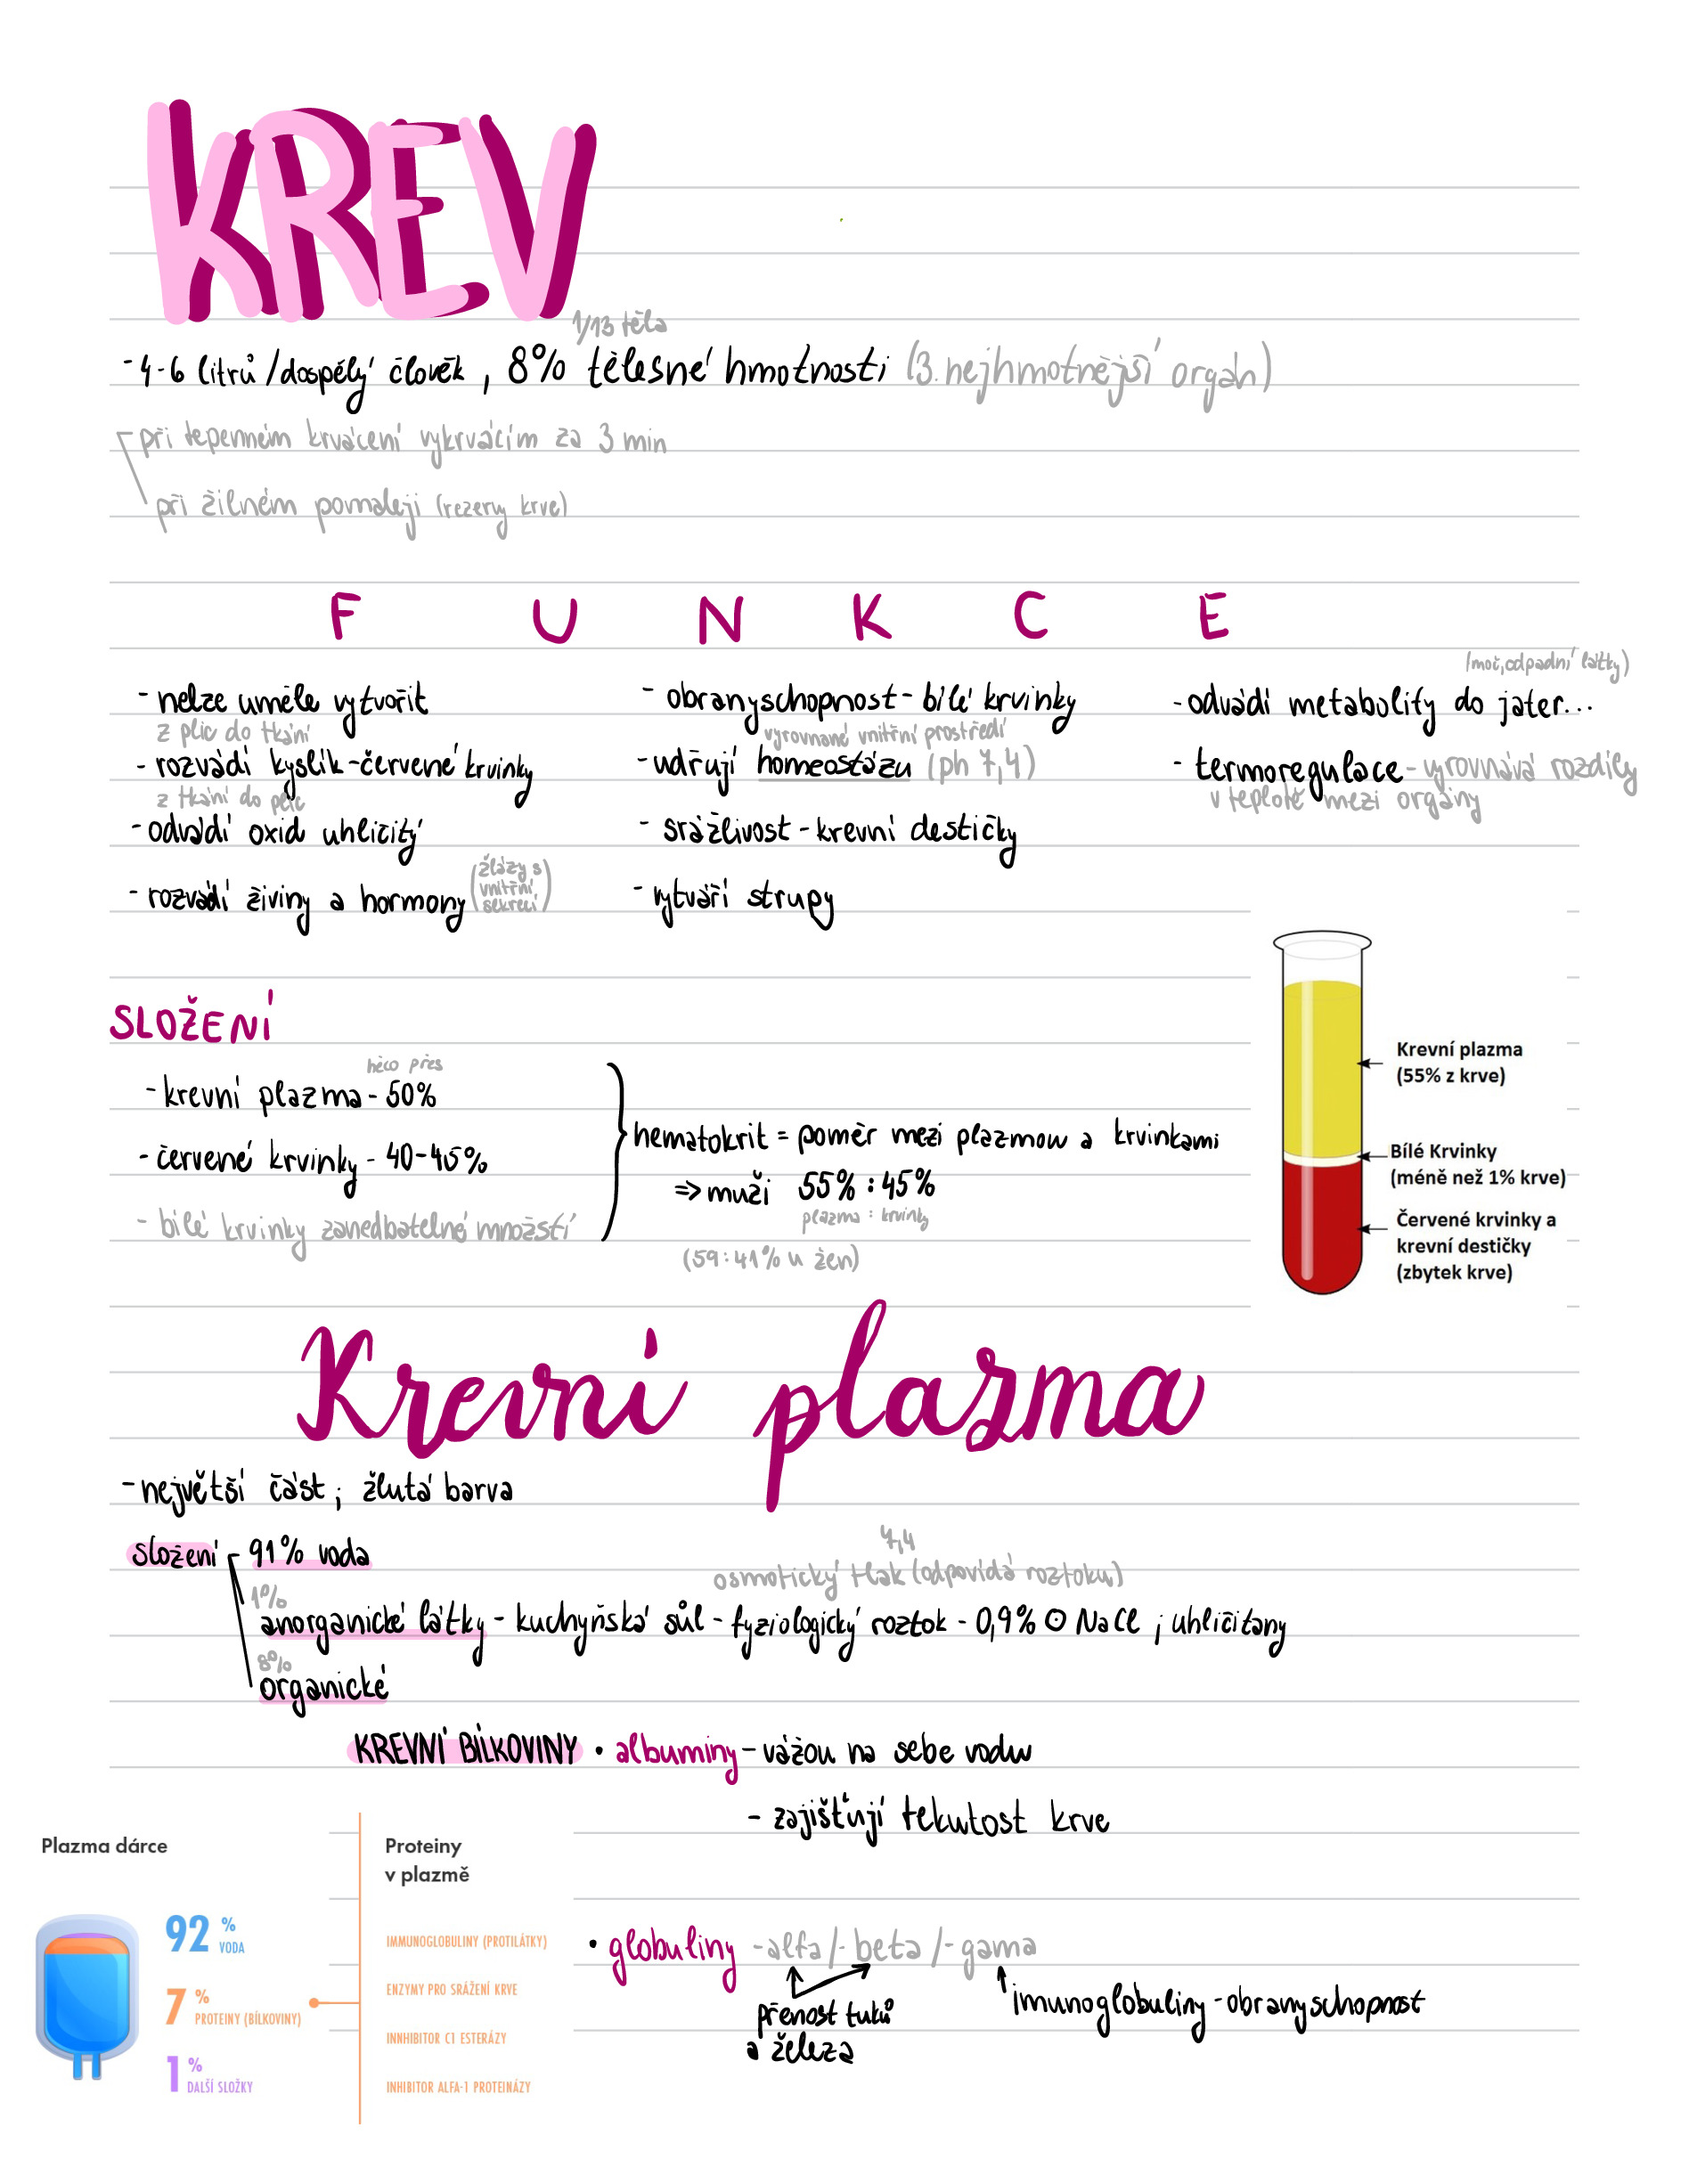 KREV
1/13 těla
- 4-6 litrů/dospělý člověk, 8% tělesné hmotnosti (3. nejhmotnější orgán)
při tepenném krvácení vykrvácím za 3 min
při žilném pomaleji (rezervy krve)
FUNKCE
- nelze uměle vytvořit
z plic do tkání
- rozvádí kyslík - červené krvinky
z tkání do plic
- odvádí oxid uhličitý
- rozvádí živiny a hormony (žlázy s vnitřní sekrecí)
- obranyschopnost - bílé krvinky
vyrovnané vnitřní prostředí
- udržují homeostázu (ph 7,4)
- srážlivost - krevní destičky
- vytváří strupy
(moč, odpadní látky)
- odvádí metabolity do jater...
- termoregulace - vyrovnává rozdíly
v teplotě mezi orgány
SLOŽENÍ
něco přes
- krevní plazma - 50%
- červené krvinky - 40-45%
- bílé krvinky zanedbatelné množstí
hematokrit = poměr mezi plazmou a krvinkami
=> muži 55% : 45%
plazma : krvinky
(59:41% u žen)
Krevní plazma
(55% z krve)
Bílé Krvinky
(méně než 1% krve)
Červené krvinky a
krevní destičky
(zbytek krve)
Krevní plazma
- největší část; žlutá barva
složení - 91% voda
7,4
osmotický tlak (odpovídá roztoku)
1%
anorganické látky - kuchyňská sůl - fyziologický roztok - 0,9% O NaCl ; uhličitany
8%
organické
KREVNÍ BÍLKOVINY • albuminy - vážou na sebe vodu
- zajišťují tekutost krve
• globuliny - alfa/- beta/- gama
přenost tuků
a železa
imunoglobuliny - obranyschopnost
Plazma dárce
92 %
VODA
7 %
PROTEINY (BÍLKOVINY)
1 %
DALŠÍ SLOŽKY
Proteiny
v plazmě
IMMUNOGLOBULINY (PROTILÁTKY)
ENZYMY PRO SRÁŽENÍ KRVE
INNHIBITOR C1 ESTERÁZY
INHIBITOR ALFA-1 PROTEINÁZY